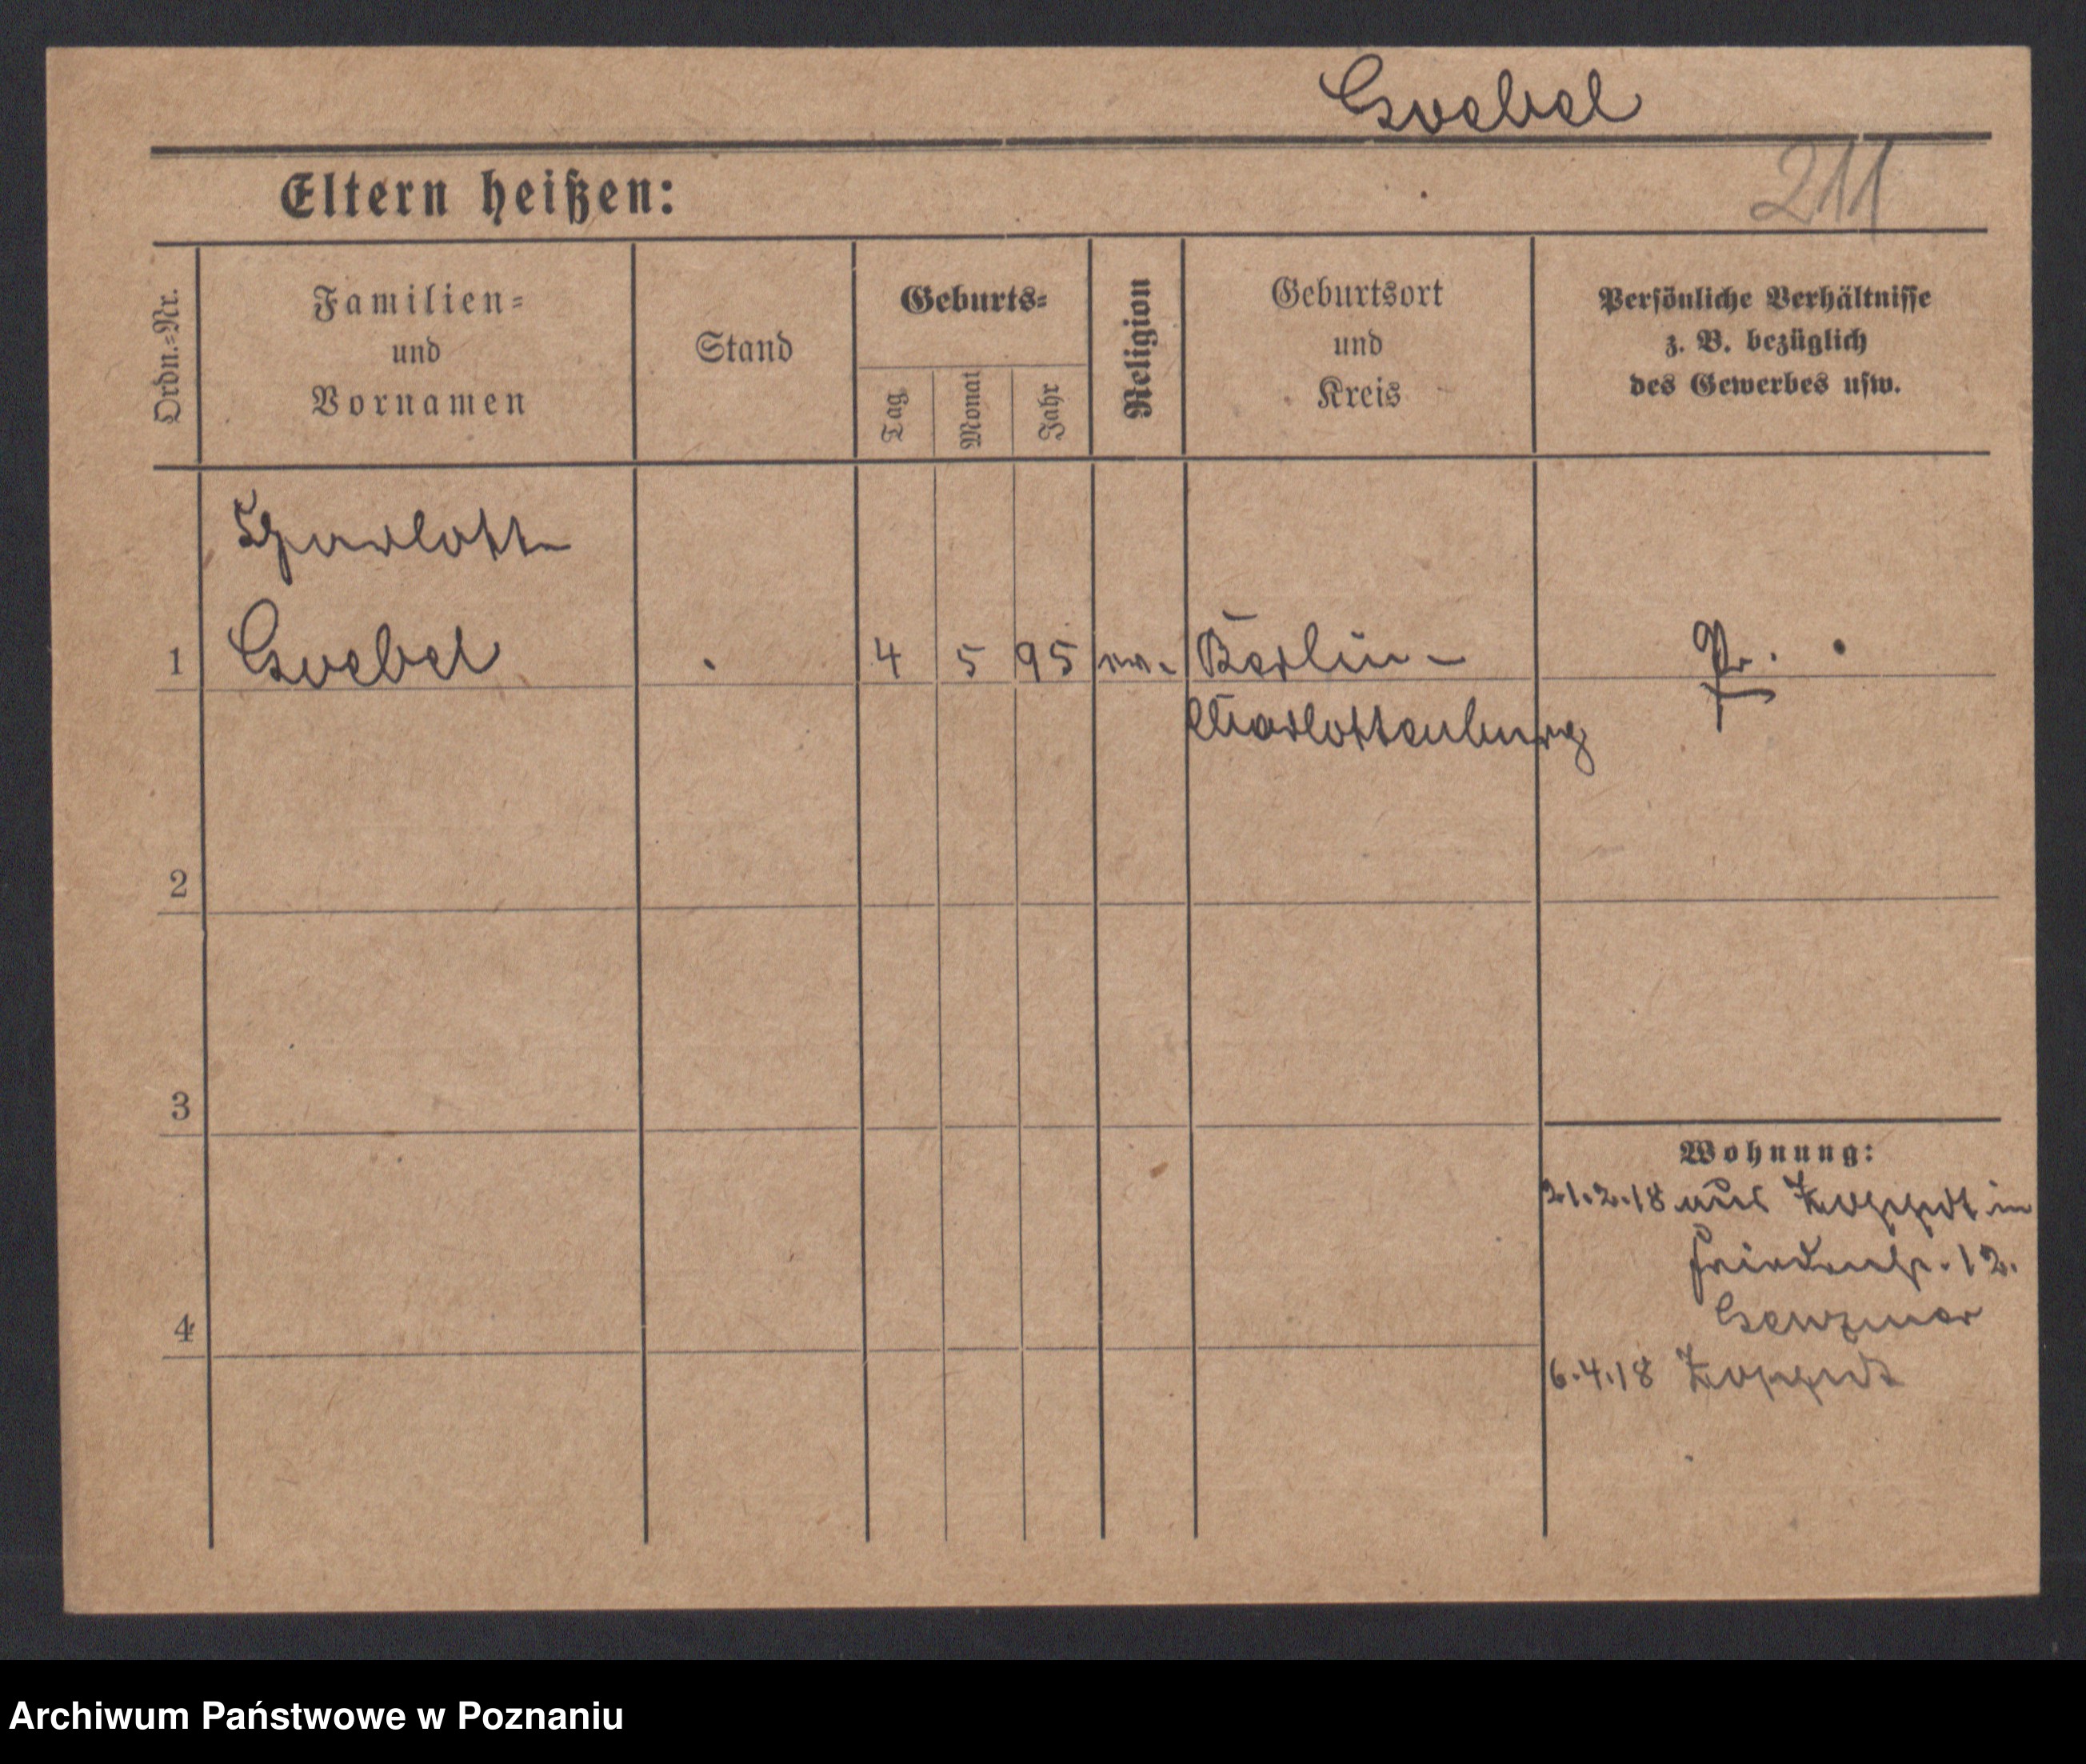 Goebel
Eltern heißen:
211
Ordn.=Nr.
Familien=
und
Vornamen
Stand
Geburts=
Tag
Monat
Jahr
Religion
Geburtsort
und
Kreis
Persönliche Verhältnisse
z. B. bezüglich
des Gewerbes usw.
Charlotte
1 Goebel 4 5 95 ev. Berlin-
Charlottenburg
Pr.
2
3
4
Wohnung:
21.2.18 aus Zoppot in
12.
Genzmer
6.4.18 Zoppot
Archiwum Państwowe w Poznaniu